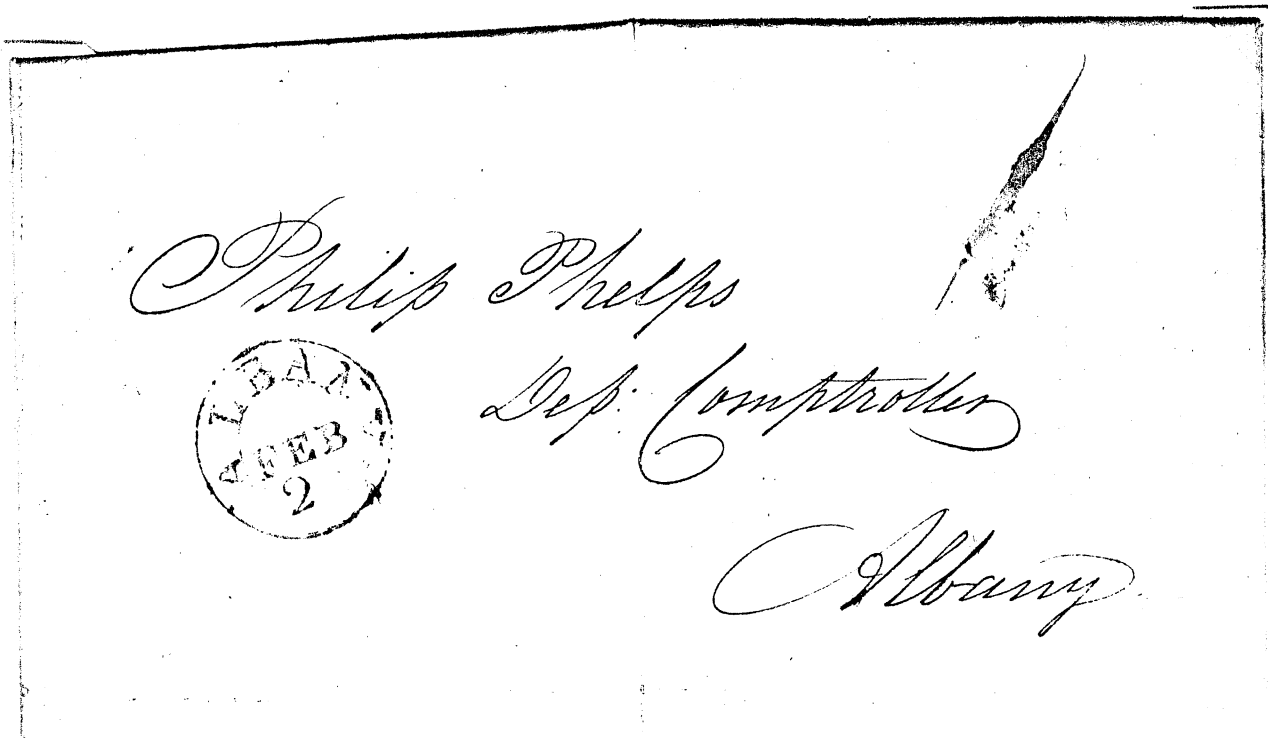 Philip Phelps
Dep: Comptroller
Albany
ALBANY
FEB
2